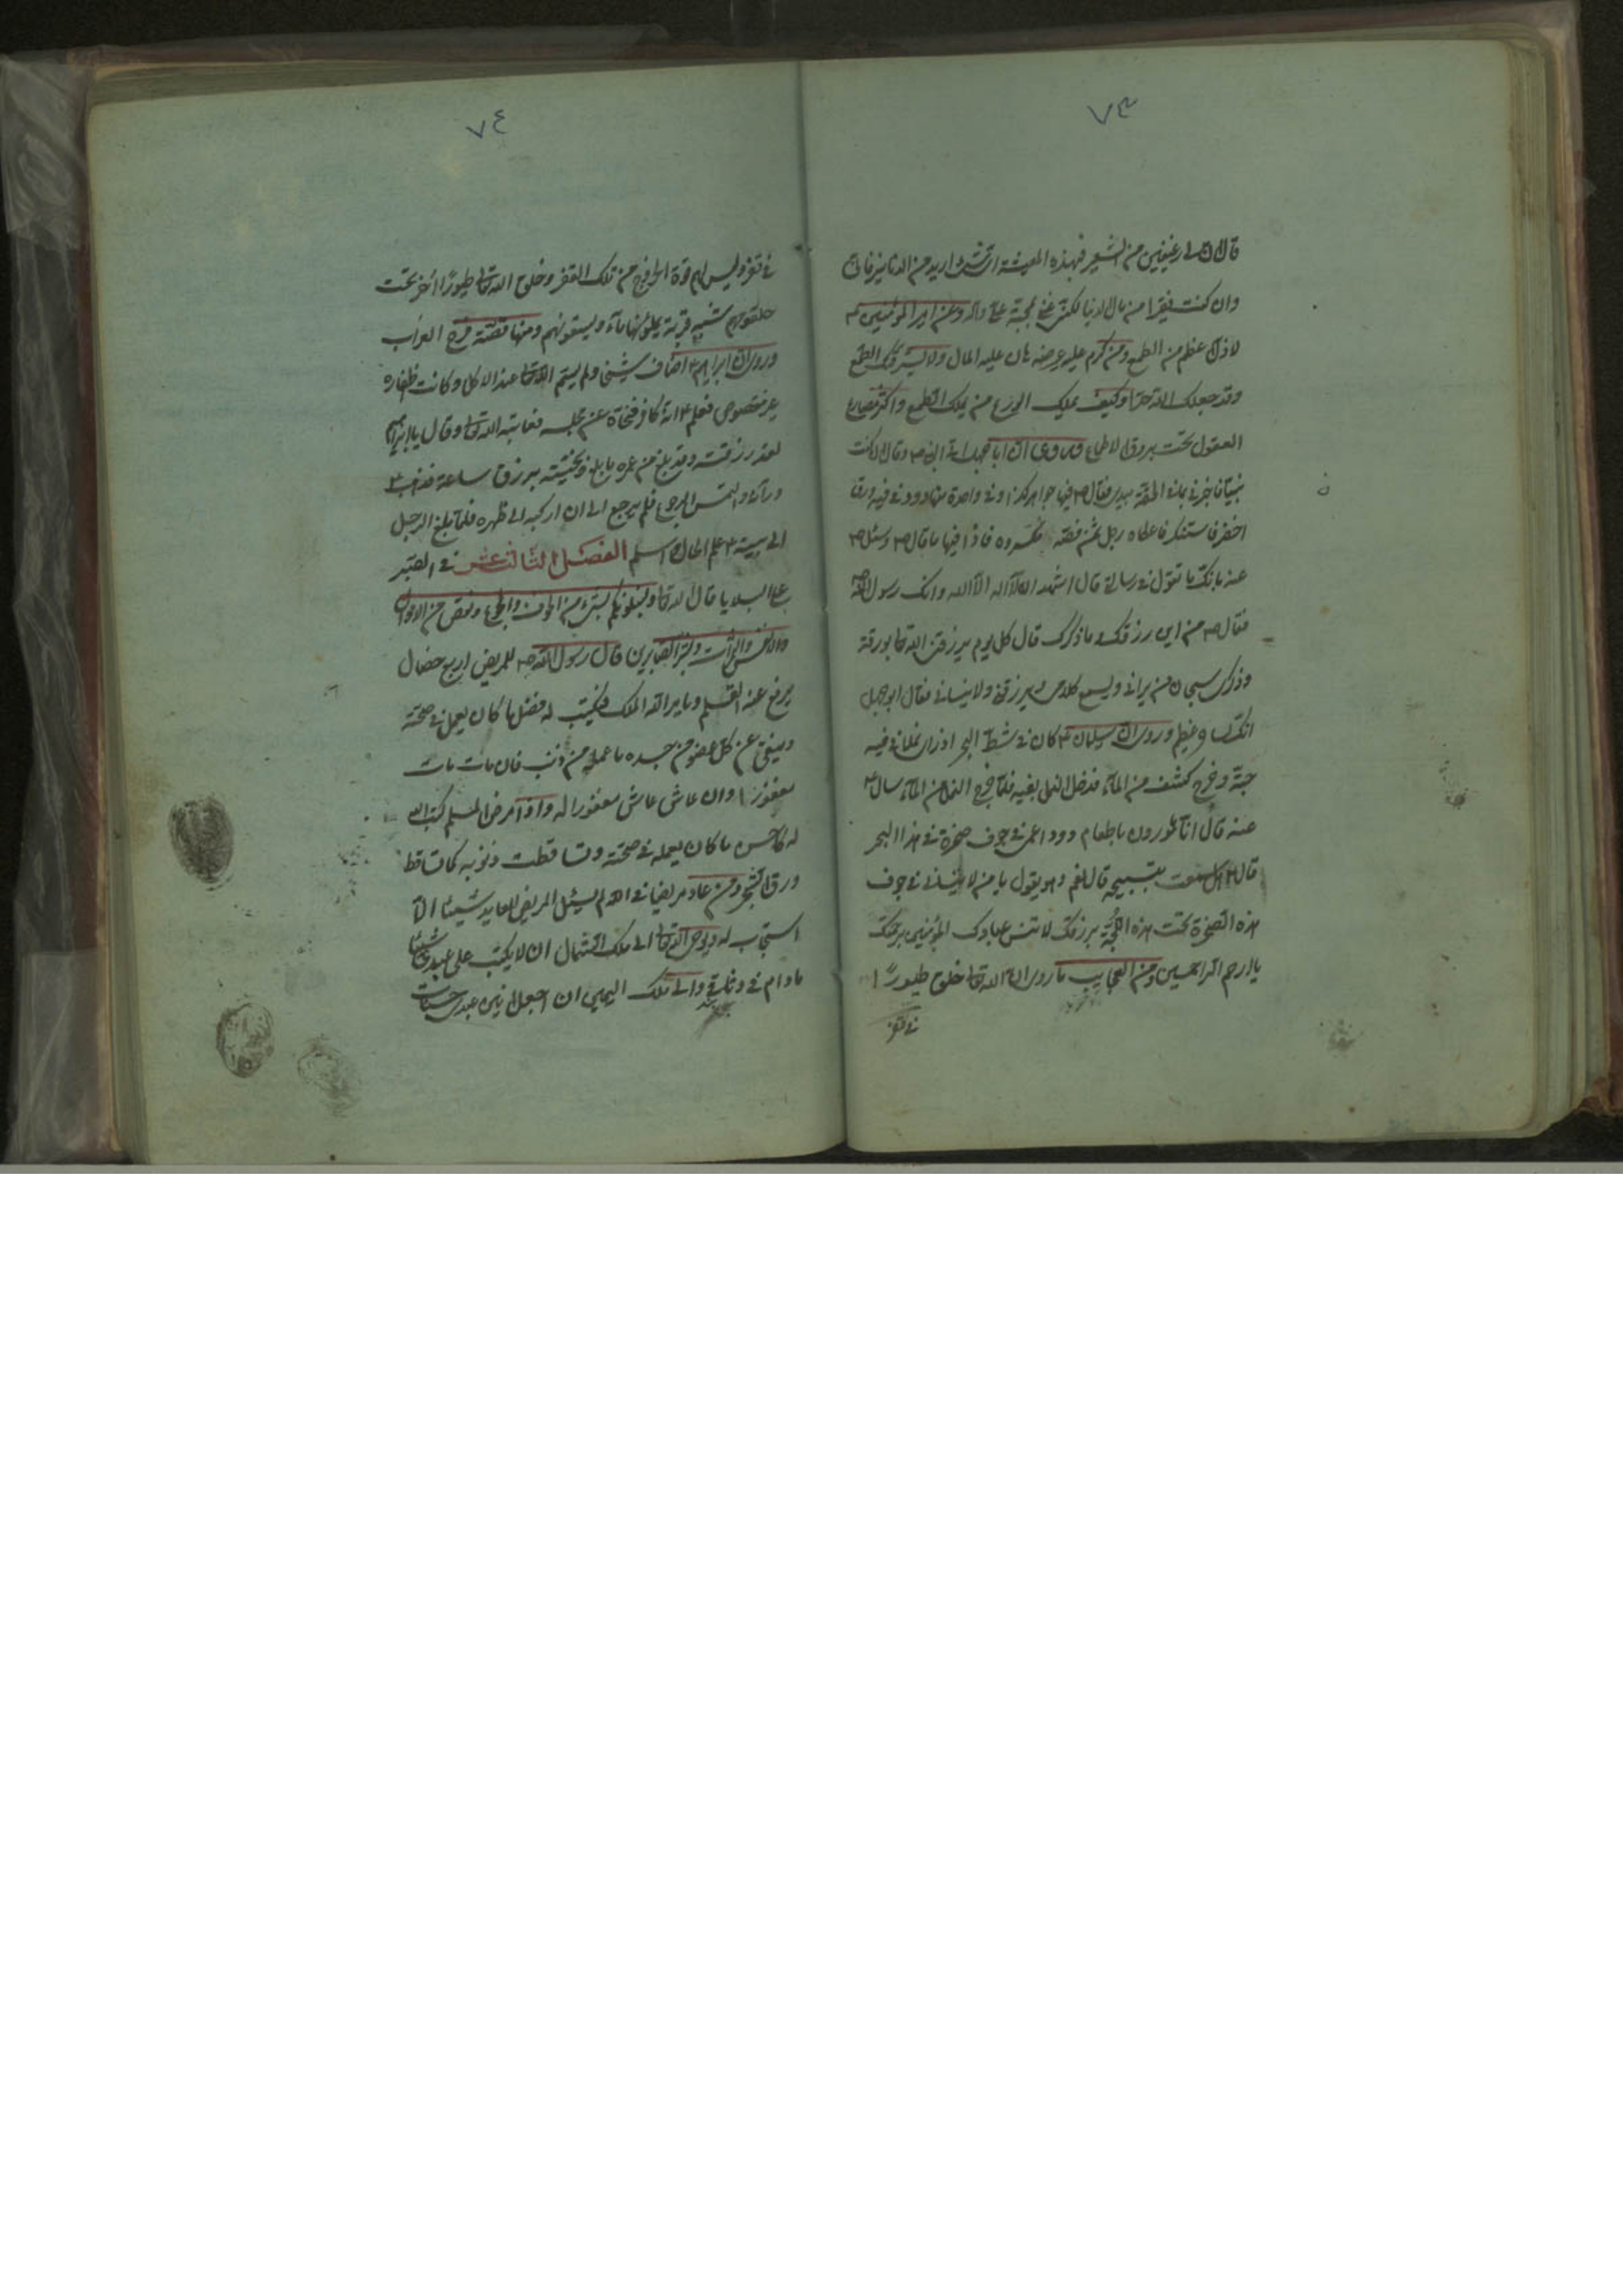 ٧٣
قال ان لي رغيفين من الشعير فبهذه المعيشة اي شئ اريد من الدنانير فاني
وان كنت فقيرا من مال الدنيا لكني غني بمحبة علي واله وعن امير المؤمنين ع
لا ذل اعظم من الطمع ومن كرم عليه عرضه هان عليه المال ولا يسترقك الطمع
وقد جعلك الله حرا وكيف يملك الورع من يملك الطمع واكثر مصارع
العقول تحت بروق الاطماع وروي ان ابا جهل اتى النبي ص وقال ان كنت
نبيا فاخبرني بما في الحقة بيدي فقال ص فيها جواهر كذا وفي واحدة منها دود في فيه ورق
اخضر فاستنكر فاعطاه رجل ثمنه فكسروه فاذا فيها ما قال ص وسئل ص
عنه بانك ما تقول في رسالتي قال اشهد ان لا اله الا الله وانك رسول الله
فقال ص من اين رزقك وما ذكرك قال كل يوم يرزقني الله تعالى بورقة
وذكري سبحان من يراني ويسمع كلامي ويرزقني ولا ينساني فقال ابو جهل
انك لساحر عظيم وروي ان سليمان ع كان في شط البحر اذ راى نملة في فيه
حبة وخرج كشف من الماء فدخل النمل بفيه فلما خرج النمل من الماء سال ع
عنه قال انا مأمورون باطعام دود اعمى في جوف صخرة في هذا البحر
قال ع هل سمعت بتسبيحه قال نعم وهو يقول يا من لا ينساني في جوف
هذه الصخرة تحت هذه اللجة برزقك لا تنس عبادك المؤمنين برحمتك
يا ارحم الراحمين ومن العجايب ما روي ان الله تعالى خلق طيورا
في قفر
٧٤
في قفر وليس لهم قوة الخروج من تلك القفر وخلق الله تعالى طيورا اخر تحت
حلقومهم شبيه قربة يملؤنها ماء ويسقونهم ومنها قصة فرخ الغراب
وروي ان ابراهيم ع اضاف شيخا ولم يسم الله تعالى عند الاكل وكانت اظفاره
غير مقصوص فعلم ع انه كافر فنحاه عن مجلسه فعاتبه الله تعالى وقال يا ابراهيم
لقد رزقته وقد بلغ من عمره ما بلغ ونحيته برزق ساعة فذهب ع
وراءه والتمس الرجوع فلم يرجع الى ان اركبه الى ظهره فلما بلغ الرجل
الى بيته ع علم الحال اسلم الفصل الثالث عشر في الصبر
على البلايا قال الله تعالى ولنبلونكم بشئ من الخوف والجوع ونقص من الاموال
والانفس والثمرات وبشر الصابرين قال رسول الله ص للمريض اربع خصال
يرفع عنه القلم ويامر الله الملك فيكتب له فضل ما كان يعمل في صحته
وينفي عن كل عضو من جسده ما عمله من ذنب فان مات مات
مغفورا وان عاش عاش مغفورا له واذا مرض المسلم كتب الله
له كاحسن ما كان يعمله في صحته وتساقطت ذنوبه كما تساقط
ورق الشجر ومن عاد مريضا في الله لم يسئل المريض للعايد شيئا الا
استجاب له ويوحي الله تعالى الى ملك الشمال ان لا يكتب على عبدي شيئا
مادام في وثاقي والى ملك اليمين ان اجعل انين عبدي حسنات